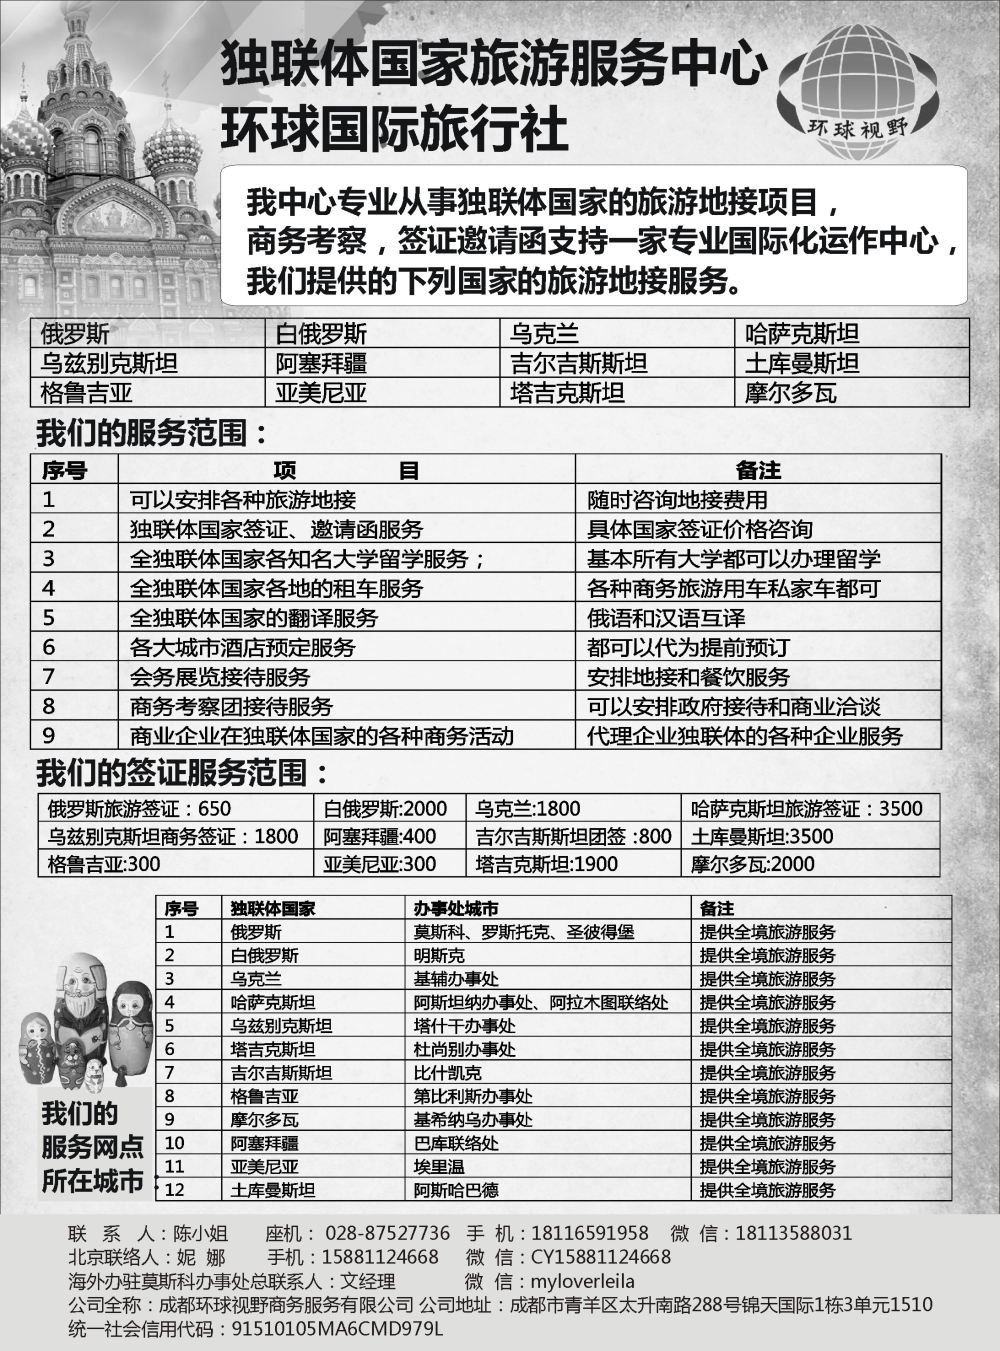 独联体国家旅游服务中心
环球国际旅行社
环球视野
我中心专业从事独联体国家的旅游地接项目，
商务考察，签证邀请函支持一家专业国际化运作中心，
我们提供的下列国家的旅游地接服务。
俄罗斯 白俄罗斯 乌克兰 哈萨克斯坦
乌兹别克斯坦 阿塞拜疆 吉尔吉斯斯坦 土库曼斯坦
格鲁吉亚 亚美尼亚 塔吉克斯坦 摩尔多瓦
我们的服务范围：
序号 项 目 备注
1 可以安排各种旅游地接 随时咨询地接费用
2 独联体国家签证、邀请函服务 具体国家签证价格咨询
3 全独联体国家各知名大学留学服务； 基本所有大学都可以办理留学
4 全独联体国家各地的租车服务 各种商务旅游用车私家车都可
5 全独联体国家的翻译服务 俄语和汉语互译
6 各大城市酒店预定服务 都可以代为提前预订
7 会务展览接待服务 安排地接和餐饮服务
8 商务考察团接待服务 可以安排政府接待和商业洽谈
9 商业企业在独联体国家的各种商务活动 代理企业独联体的各种企业服务
我们的签证服务范围：
俄罗斯旅游签证：650 白俄罗斯:2000 乌克兰:1800 哈萨克斯坦旅游签证：3500
乌兹别克斯坦商务签证：1800 阿塞拜疆:400 吉尔吉斯斯坦团签：800 土库曼斯坦:3500
格鲁吉亚:300 亚美尼亚:300 塔吉克斯坦:1900 摩尔多瓦:2000
序号 独联体国家 办事处城市 备注
1 俄罗斯 莫斯科、罗斯托克、圣彼得堡 提供全境旅游服务
2 白俄罗斯 明斯克 提供全境旅游服务
3 乌克兰 基辅办事处 提供全境旅游服务
4 哈萨克斯坦 阿斯坦纳办事处、阿拉木图联络处 提供全境旅游服务
5 乌兹别克斯坦 塔什干办事处 提供全境旅游服务
6 塔吉克斯坦 杜尚别办事处 提供全境旅游服务
7 吉尔吉斯斯坦 比什凯克 提供全境旅游服务
8 格鲁吉亚 第比利斯办事处 提供全境旅游服务
9 摩尔多瓦 基希纳乌办事处 提供全境旅游服务
10 阿塞拜疆 巴库联络处 提供全境旅游服务
11 亚美尼亚 埃里温 提供全境旅游服务
12 土库曼斯坦 阿斯哈巴德 提供全境旅游服务
我们的
服务网点
所在城市：
联 系 人：陈小姐 座机： 028-87527736 手 机：18116591958 微 信：18113588031
北京联络人：妮 娜 手机：15881124668 微 信：CY15881124668
海外办驻莫斯科办事处总联系人：文经理 微 信：myloverleila
公司全称：成都环球视野商务服务有限公司 公司地址：成都市青羊区太升南路288号锦天国际1栋3单元1510
统一社会信用代码：91510105MA6CMD979L